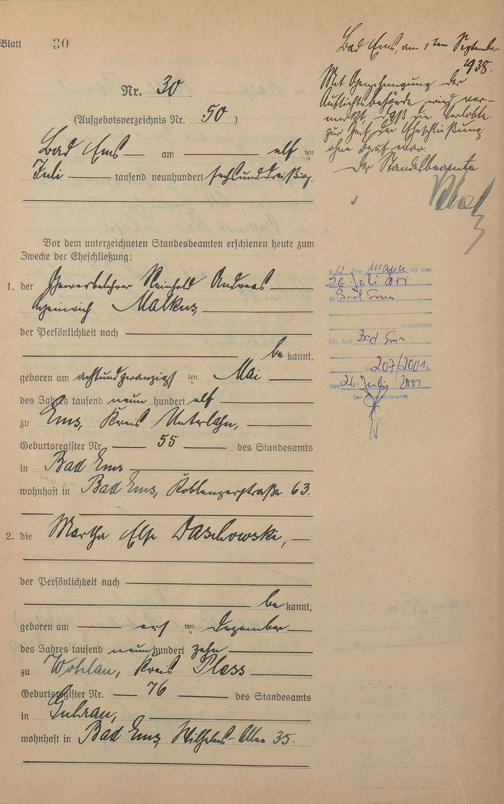 Blatt 30
Nr. 30
(Aufgebotsverzeichnis Nr. 50)
Bad Ems am elf ten
Juli tausend neunhundert sechsunddreißig.
Vor dem unterzeichneten Standesbeamten erschienen heute zum
Zwecke der Eheschließung:
1. der Gewerbelehrer Reinhold Andreas
Heinrich Malkus
der Persönlichkeit nach
be kannt,
geboren am achtundzwanzigst ten Mai
des Jahres tausend neun hundert elf
zu Ems, Kreis Unterlahn,
Geburtsregister Nr. 55 des Standesamts
in Bad Ems
wohnhaft in Bad Ems, Koblenzerstraße 63.
2. die Martha Else Daschowski,
der Persönlichkeit nach
be kannt,
geboren am ten Dezember
des Jahres tausend neun hundert zehn
zu Wohlau, Kreis Pless
Geburtsregister Nr. 76 des Standesamts
in
wohnhaft in Bad Ems, Wilhelms-Allee 35.
Bad Ems, am September
Mit Genehmigung der
Aufsichtsbehörde wird ver-
merkt, daß die Verlobte
zur Zeit der Eheschließung
ohne Beruf war.
Der Standesbeamte
26 Juli 2001
in Bad Ems
Bad Ems
207/2001
26 Juli 2001